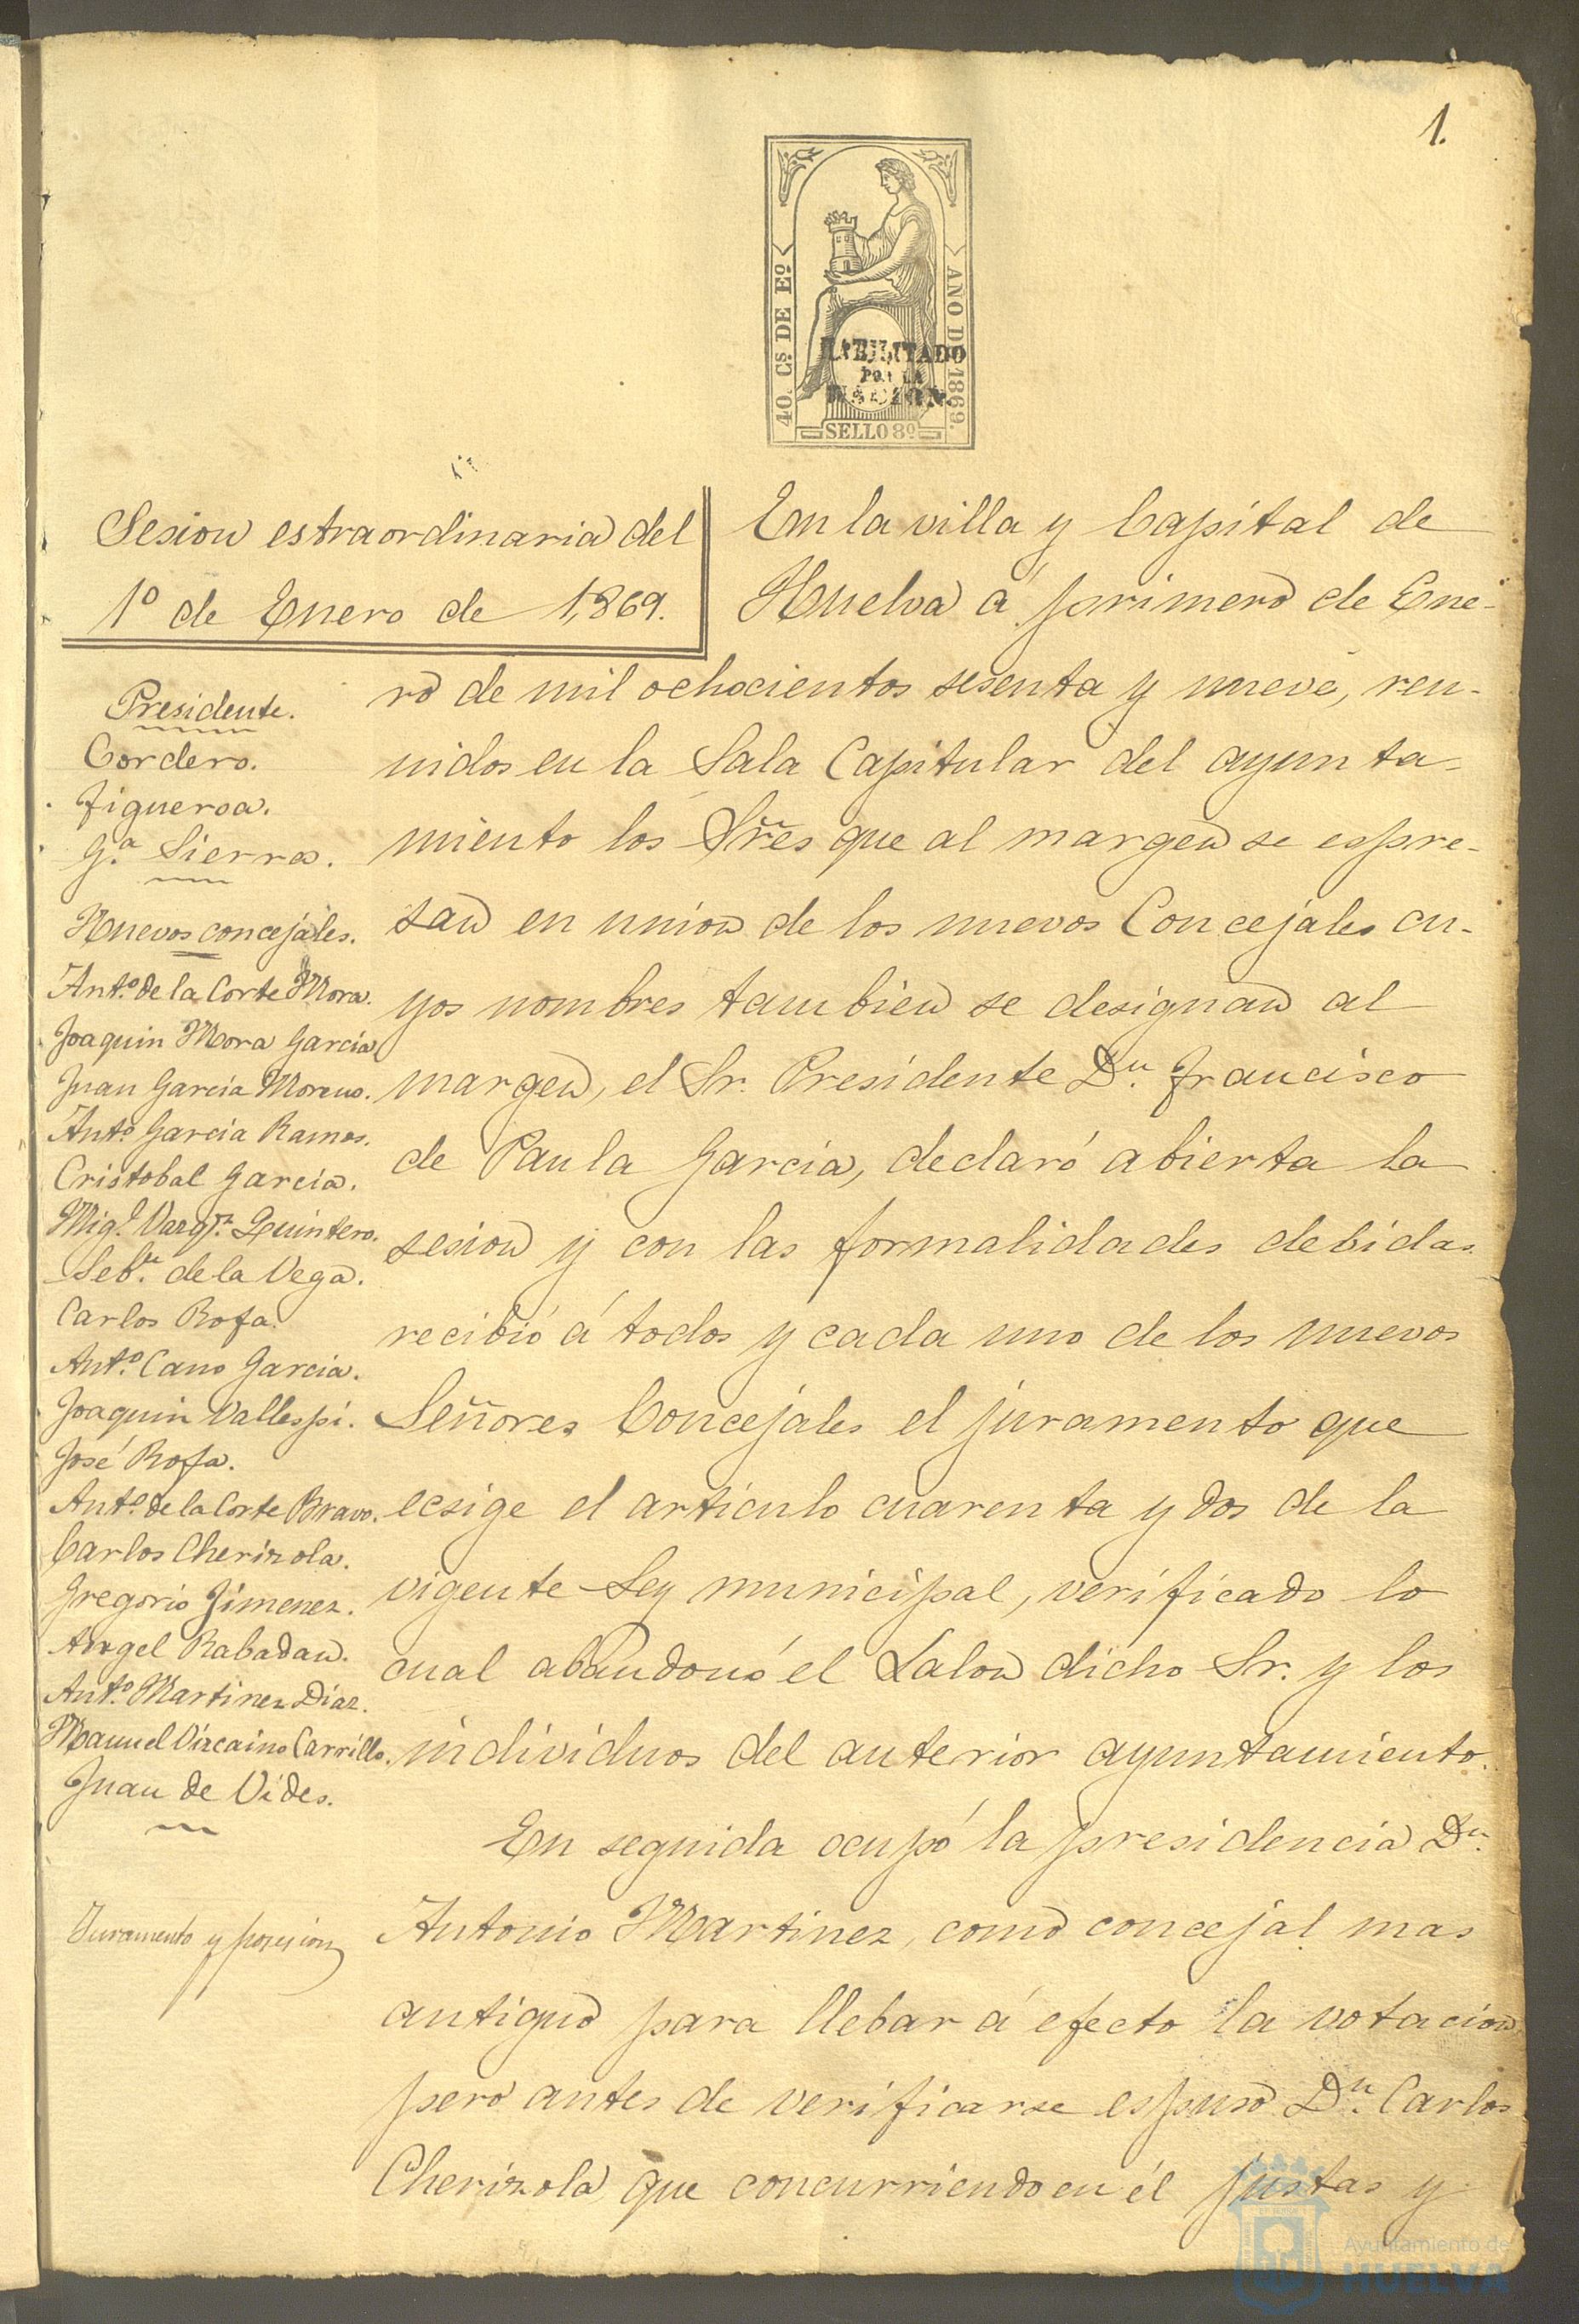 1.
40. Cs. DE Eº
AÑO D 1869.
HABILITADO
POR LA
NACION.
SELLO 8º
Sesion estraordinaria del
1º de Enero de 1,869.
Presidente.
Cordero.
Figueroa.
G.ª Sierra.
Nuevos concejales.
Ant.º de la Corte Mora.
Joaquin Mora Garcia
Juan Garcia Moreno.
Ant.º Garcia Ramos.
Cristobal Garcia.
Mig.l Vazq.z Quintero.
Seb.n de la Vega.
Carlos Rofa.
Ant.º Cano Garcia.
Joaquin Vallespi.
José Rofa.
Ant.º de la Corte Bravo.
Carlos Cherizola.
Gregorio Jimenez.
Angel Rabadan.
Ant.º Martinez Diaz.
Manuel Vizcaino Carrillo.
Juan de Vides.
Juramento y posesion
En la villa y Capital de
Huelva á primero de Ene-
ro de mil ochocientos sesenta y nueve, reu-
nidos en la Sala Capitular del ayunta-
miento los Sres que al margen se espre-
san en union de los nuevos Concejales cu-
yos nombres tambien se designan al
margen, el Sr. Presidente Dn. Francisco
de Paula Garcia, declaró abierta la
sesion y con las formalidades debidas
recibió á todos y cada uno de los nuevos
Señores Concejales el juramento que
ecsige el articulo cuarenta y dos de la
vigente Ley municipal, verificado lo
cual abandonó el Salon dicho Sr. y los
individuos del anterior ayuntamiento.
En seguida ocupó la presidencia Dn.
Antonio Martinez, como concejal mas
antiguo para llebar á efecto la votacion
pero antes de verificarse espuso Dn. Carlos
Cherizola que concurriendo en él justas y
Ayuntamiento de
HUELVA